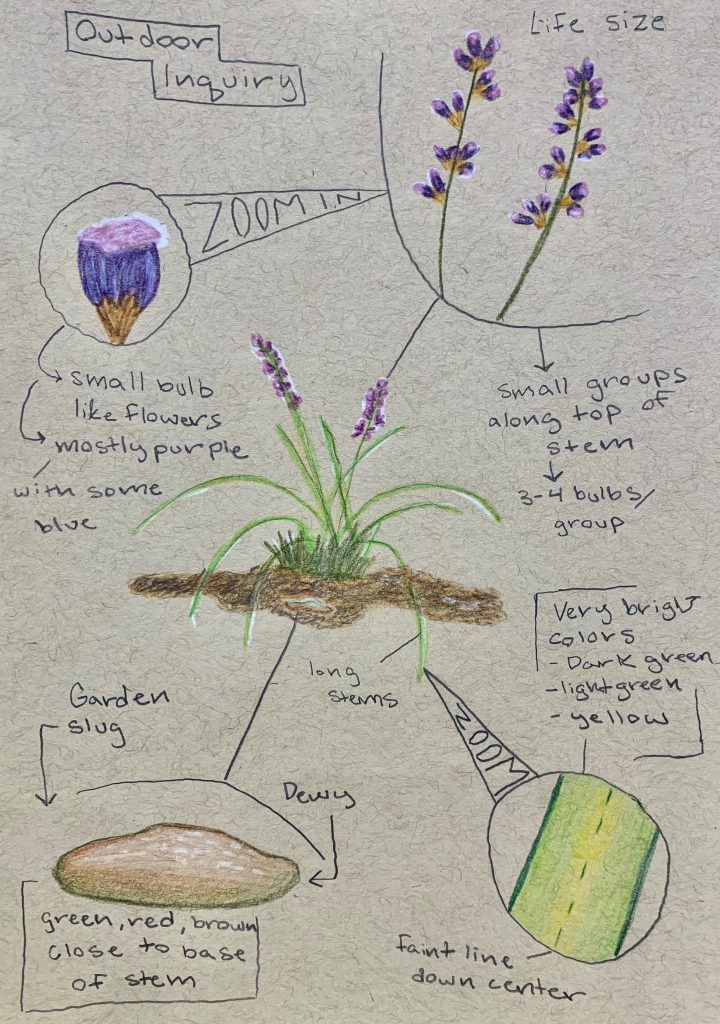 Outdoor
Inquiry
Life size
ZOOM IN
small bulb
like flowers
mostly purple
with some
blue
small groups
along top of
stem
3-4 bulbs/
group
Very bright
colors
- Dark green
- light green
- yellow
long
stems
ZOOM
Garden
slug
Dewy
green, red, brown
close to base
of stem
faint line
down center